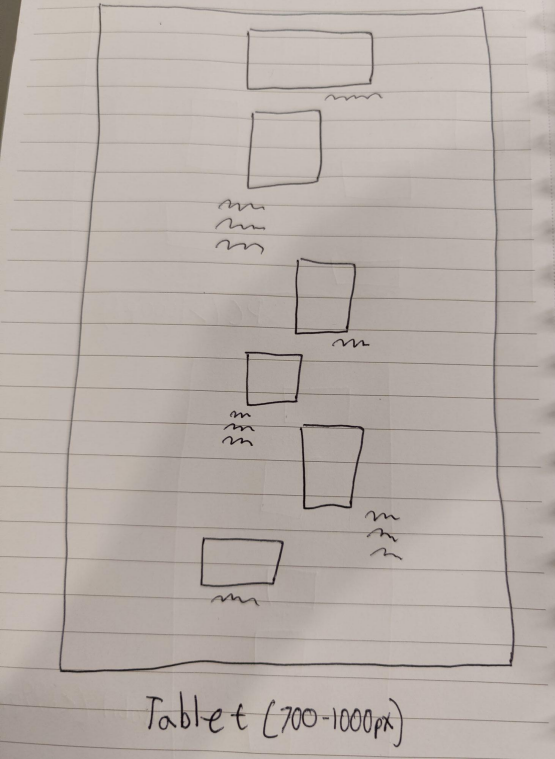 Tablet (700-1000px)